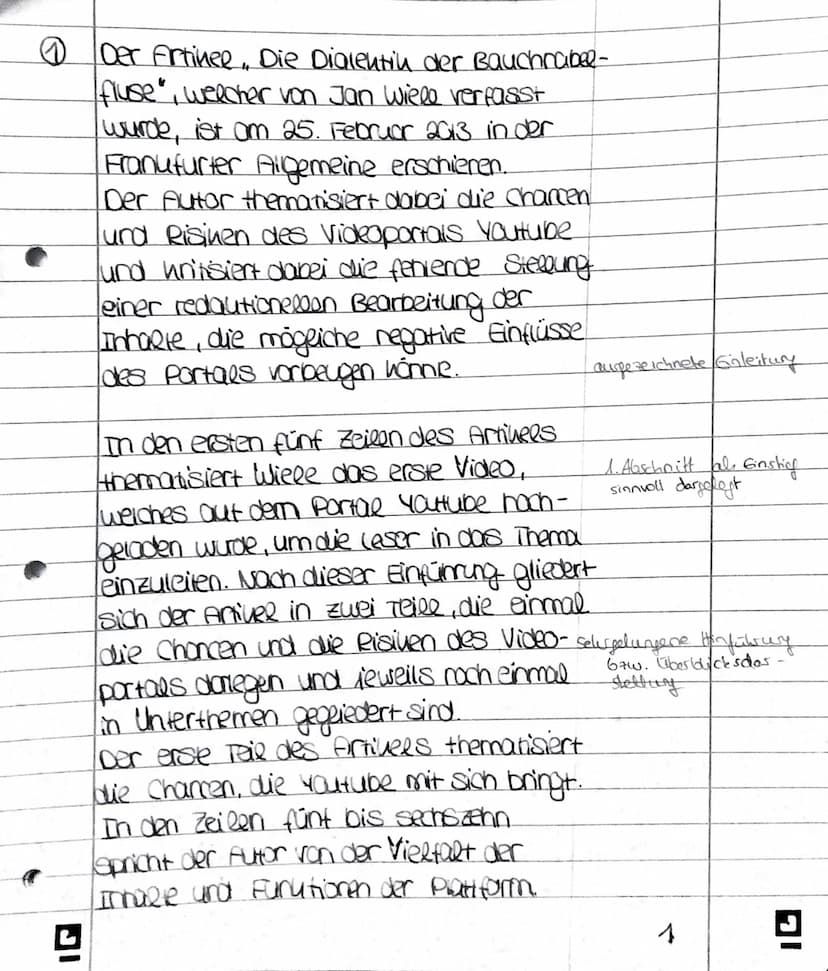 ①
Der Artikel „Die Dialektik der Bauchnabel-
fluse“, welcher von Jan Wiele verfasst
wurde, ist am 25. Februar 2013 in der
Frankfurter Allgemeine erschienen.
Der Autor thematisiert dabei die Chancen
und Risiken des Videoportals Youtube
und kritisiert dabei die fehlende Stellung
einer redaktionellen Bearbeitung der
Inhalte, die mögliche negative Einflüsse
des Portals vorbeugen könne.
ausgezeichnete Einleitung
In den ersten fünf Zeilen des Artikels
thematisiert Wiele das erste Video,
1. Abschnitt als Einstieg
sinnvoll dargelegt
welches auf dem Portal Youtube hoch-
geladen wurde, um die Leser in das Thema
einzuleiten. Nach dieser Einführung gliedert
sich der Artikel in zwei Teile, die einmal
die Chancen und die Risiken des Video-
sehr gelungene Hinführung
bzw. Überblicksdar-
stellung
portals darlegen und jeweils noch einmal
in Unterthemen gegliedert sind.
Der erste Teil des Artikels thematisiert
die Chancen, die Youtube mit sich bringt.
In den Zeilen fünf bis sechszehn
spricht der Autor von der Vielfalt der
Inhalte und Funktionen der Plattform.
1